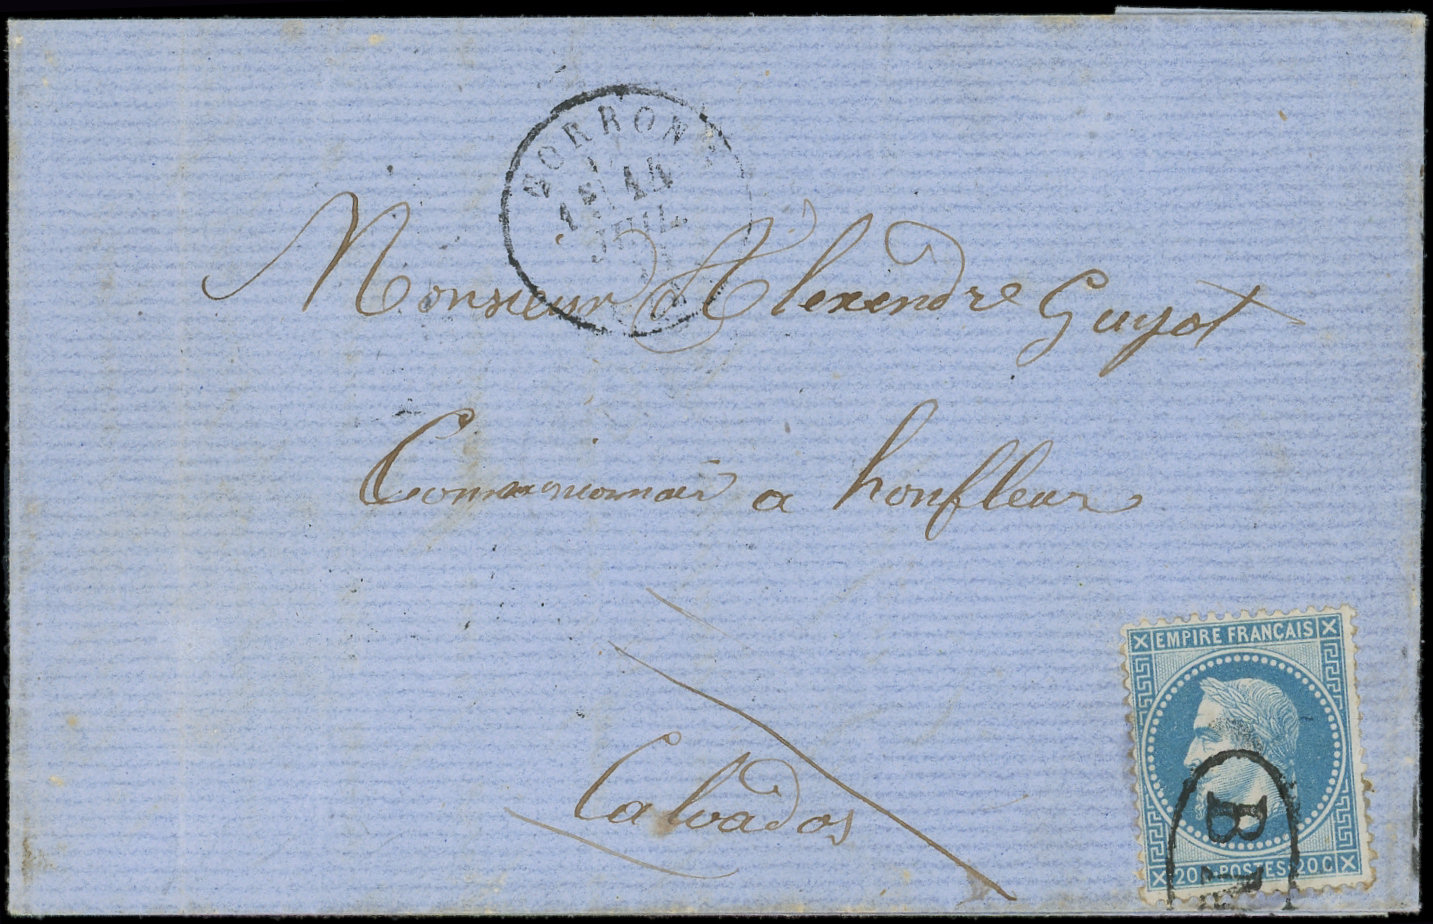 NORRONT
1E 14
JUIL.
Monsieur Alexendre Guyot
Commissionnair a honfleur
Calvados
EMPIRE FRANÇAIS
20 C POSTES 20 C
B